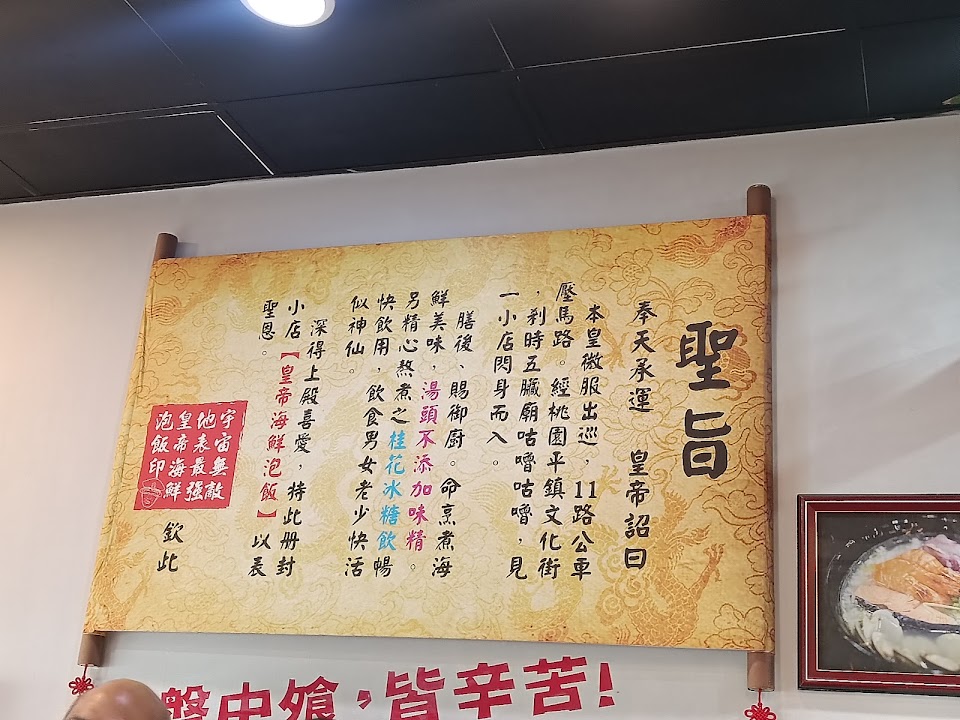 聖旨
奉天承運　皇帝詔曰
本皇微服出巡，11路公車
壓馬路。經桃園平鎮文化街
，剎時五臟廟咕嚕咕嚕，見
一小店閃身而入。
膳後、賜御廚。命烹煮海
鮮美味，湯頭不添加味精。
另精心熬煮之桂花冰糖飲暢
快飲用，飲食男女老少快活
似神仙。
深得上殿喜愛，持此册封
小店【皇帝海鮮泡飯】以表
聖恩。
宇宙無敵
地表最強
皇帝海鮮
泡飯印
欽此
盤中飧，皆辛苦!